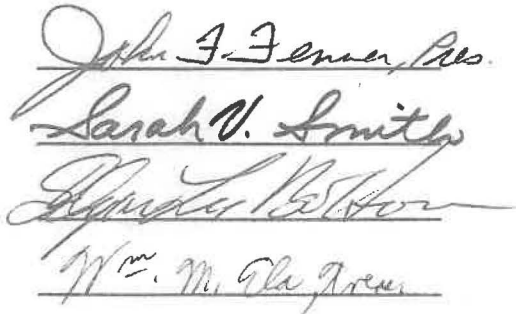 John F. Fenner, Pres.
Sarah V. Smith
Lee
Wm. M. Ela, Treas.